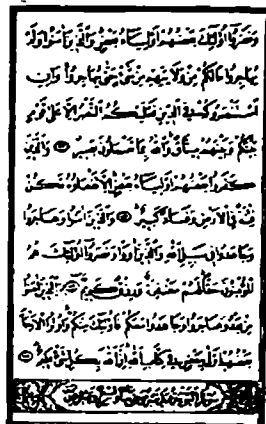 وَنَصَرُوا أُولَٰئِكَ بَعْضُهُمْ أَوْلِيَاءُ بَعْضٍ وَالَّذِينَ آمَنُوا وَلَمْ
يُهَاجِرُوا مَا لَكُمْ مِنْ وَلَايَتِهِمْ مِنْ شَيْءٍ حَتَّىٰ يُهَاجِرُوا وَإِنِ
اسْتَنْصَرُوكُمْ فِي الدِّينِ فَعَلَيْكُمُ النَّصْرُ إِلَّا عَلَىٰ قَوْمٍ
بَيْنَكُمْ وَبَيْنَهُمْ مِيثَاقٌ وَاللَّهُ بِمَا تَعْمَلُونَ بَصِيرٌ وَالَّذِينَ
كَفَرُوا بَعْضُهُمْ أَوْلِيَاءُ بَعْضٍ إِلَّا تَفْعَلُوهُ تَكُنْ
فِتْنَةٌ فِي الْأَرْضِ وَفَسَادٌ كَبِيرٌ وَالَّذِينَ آمَنُوا وَهَاجَرُوا
وَجَاهَدُوا فِي سَبِيلِ اللَّهِ وَالَّذِينَ آوَوْا وَنَصَرُوا أُولَٰئِكَ هُمُ
الْمُؤْمِنُونَ حَقًّا لَهُمْ مَغْفِرَةٌ وَرِزْقٌ كَرِيمٌ وَالَّذِينَ آمَنُوا
مِنْ بَعْدُ وَهَاجَرُوا وَجَاهَدُوا مَعَكُمْ فَأُولَٰئِكَ مِنْكُمْ وَأُولُو الْأَرْحَامِ
بَعْضُهُمْ أَوْلَىٰ بِبَعْضٍ فِي كِتَابِ اللَّهِ إِنَّ اللَّهَ بِكُلِّ شَيْءٍ عَلِيمٌ